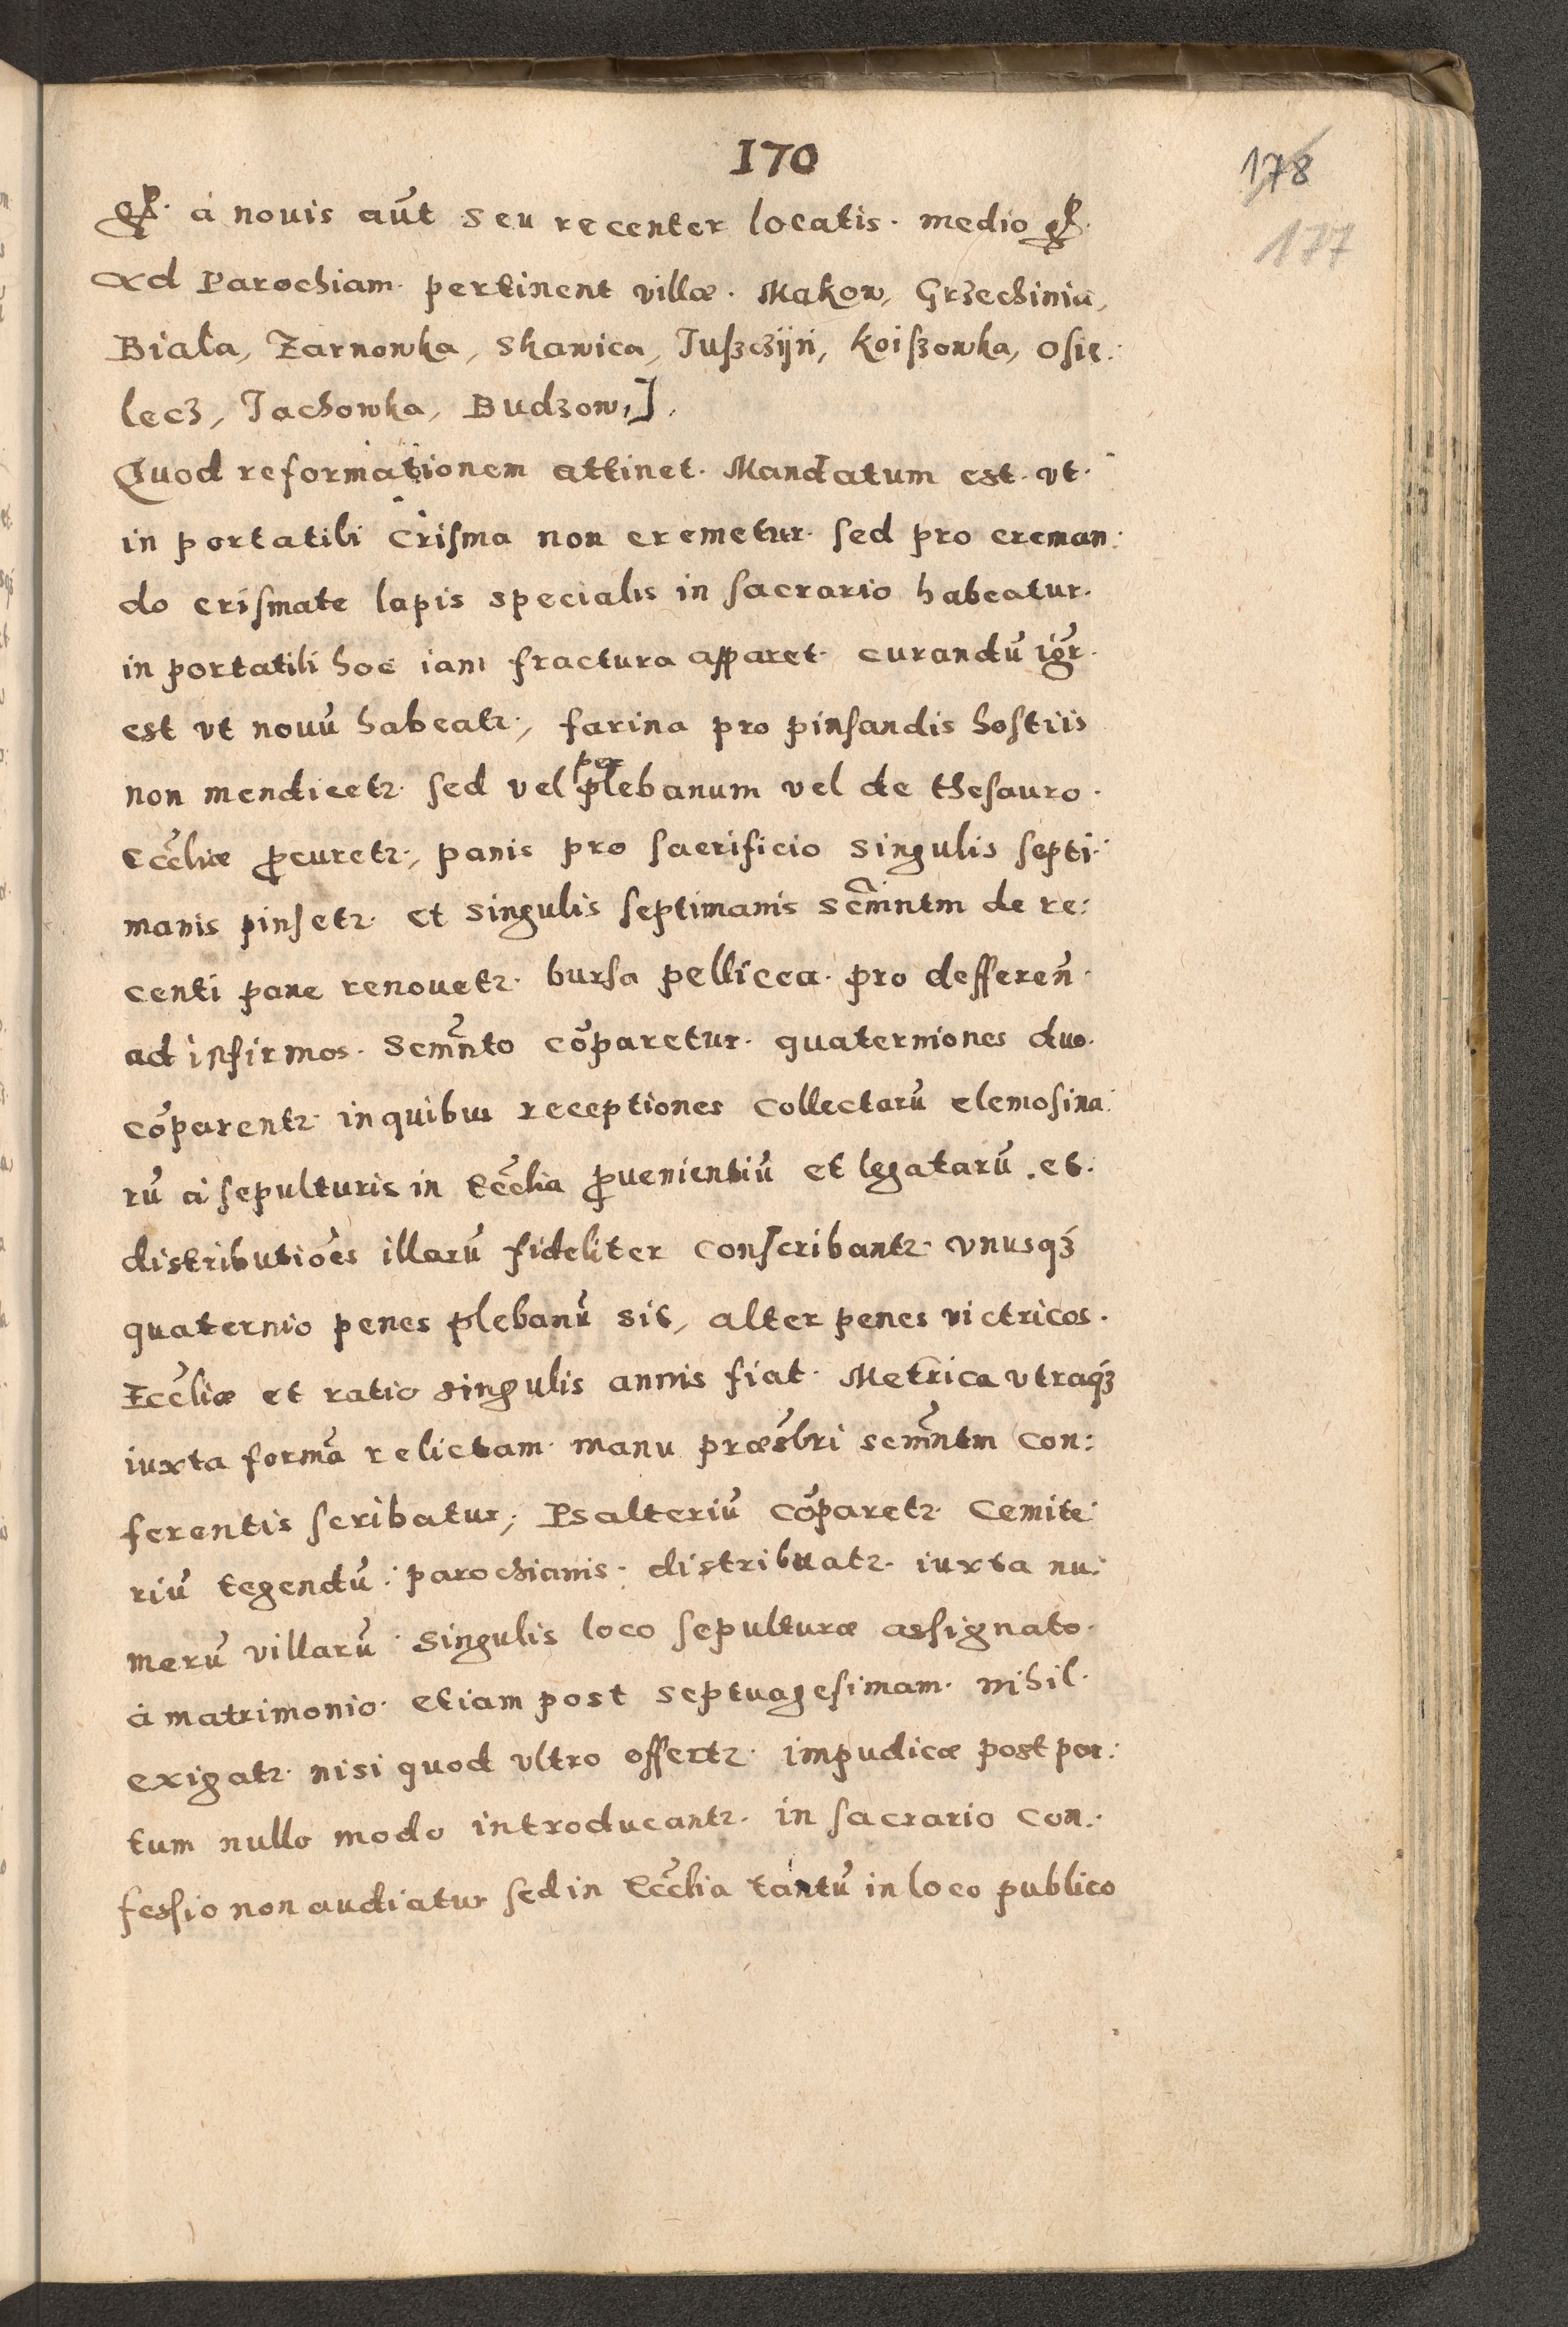 170
178
177
gr. à nouis aūt seu recenter locatis. medio gr.
Ad Parochiam. pertinent villæ. Makow, Grzechinia,
Biała, Zarnowka, Skawica, Juszczÿn, Koiszowka, Osie:
lecz, Jachowka, Budzow,],
Quod reformationem attinet. Mandatum est. vt.
in portatili Crisma non cremetur. sed pro creman:
do crismate lapis specialis in sacrario habeatur.
in portatili hoc iam fractura apparet. curandū igr̄.
est vt nouū habeatꝛ., farina pro pinsandis hostiis
non mendicetꝛ. sed vel per plebanum vel de thesauro.
Eccl̄iæ ꝓcuretꝛ., panis pro sacrificio singulis septi:
manis pinsetꝛ. et singulis septimanis Scm̄ntm de re:
centi pane renouetꝛ. bursa pellicea. pro defferen̄.
ad infirmos. Scm̄nto cōparetur. quaterniones duo.
cōparentꝛ. in quibus receptiones collectarū elemosina:
rū à sepulturis in Eccl̄ia ꝓuenientiū et legatarū. et.
distributiōes illarū fideliter conscribantꝛ. vnusqꝫ
quaternio penes plebanū sit, alter penes victricos.
Eccl̄iæ et ratio singulis annis fiat. Metrica vtraqꝫ
iuxta formā relictam. manu præsb̄ri scm̄ntm con:
ferentis scribatur; Psalteriū cōparetꝛ. Cemite:
riū tegendū: parochianis. distribuatꝛ. iuxta nu:
merū villarū singulis loco sepulturæ assignato.
à matrimonio. etiam post septuagesimam. nihil.
exigatꝛ. nisi quod vltro offertꝛ. impudicæ post par:
tum nullo modo introducantꝛ. in sacrario con:
fessio non audiatur sed in Eccl̄ia tantū in loco publico